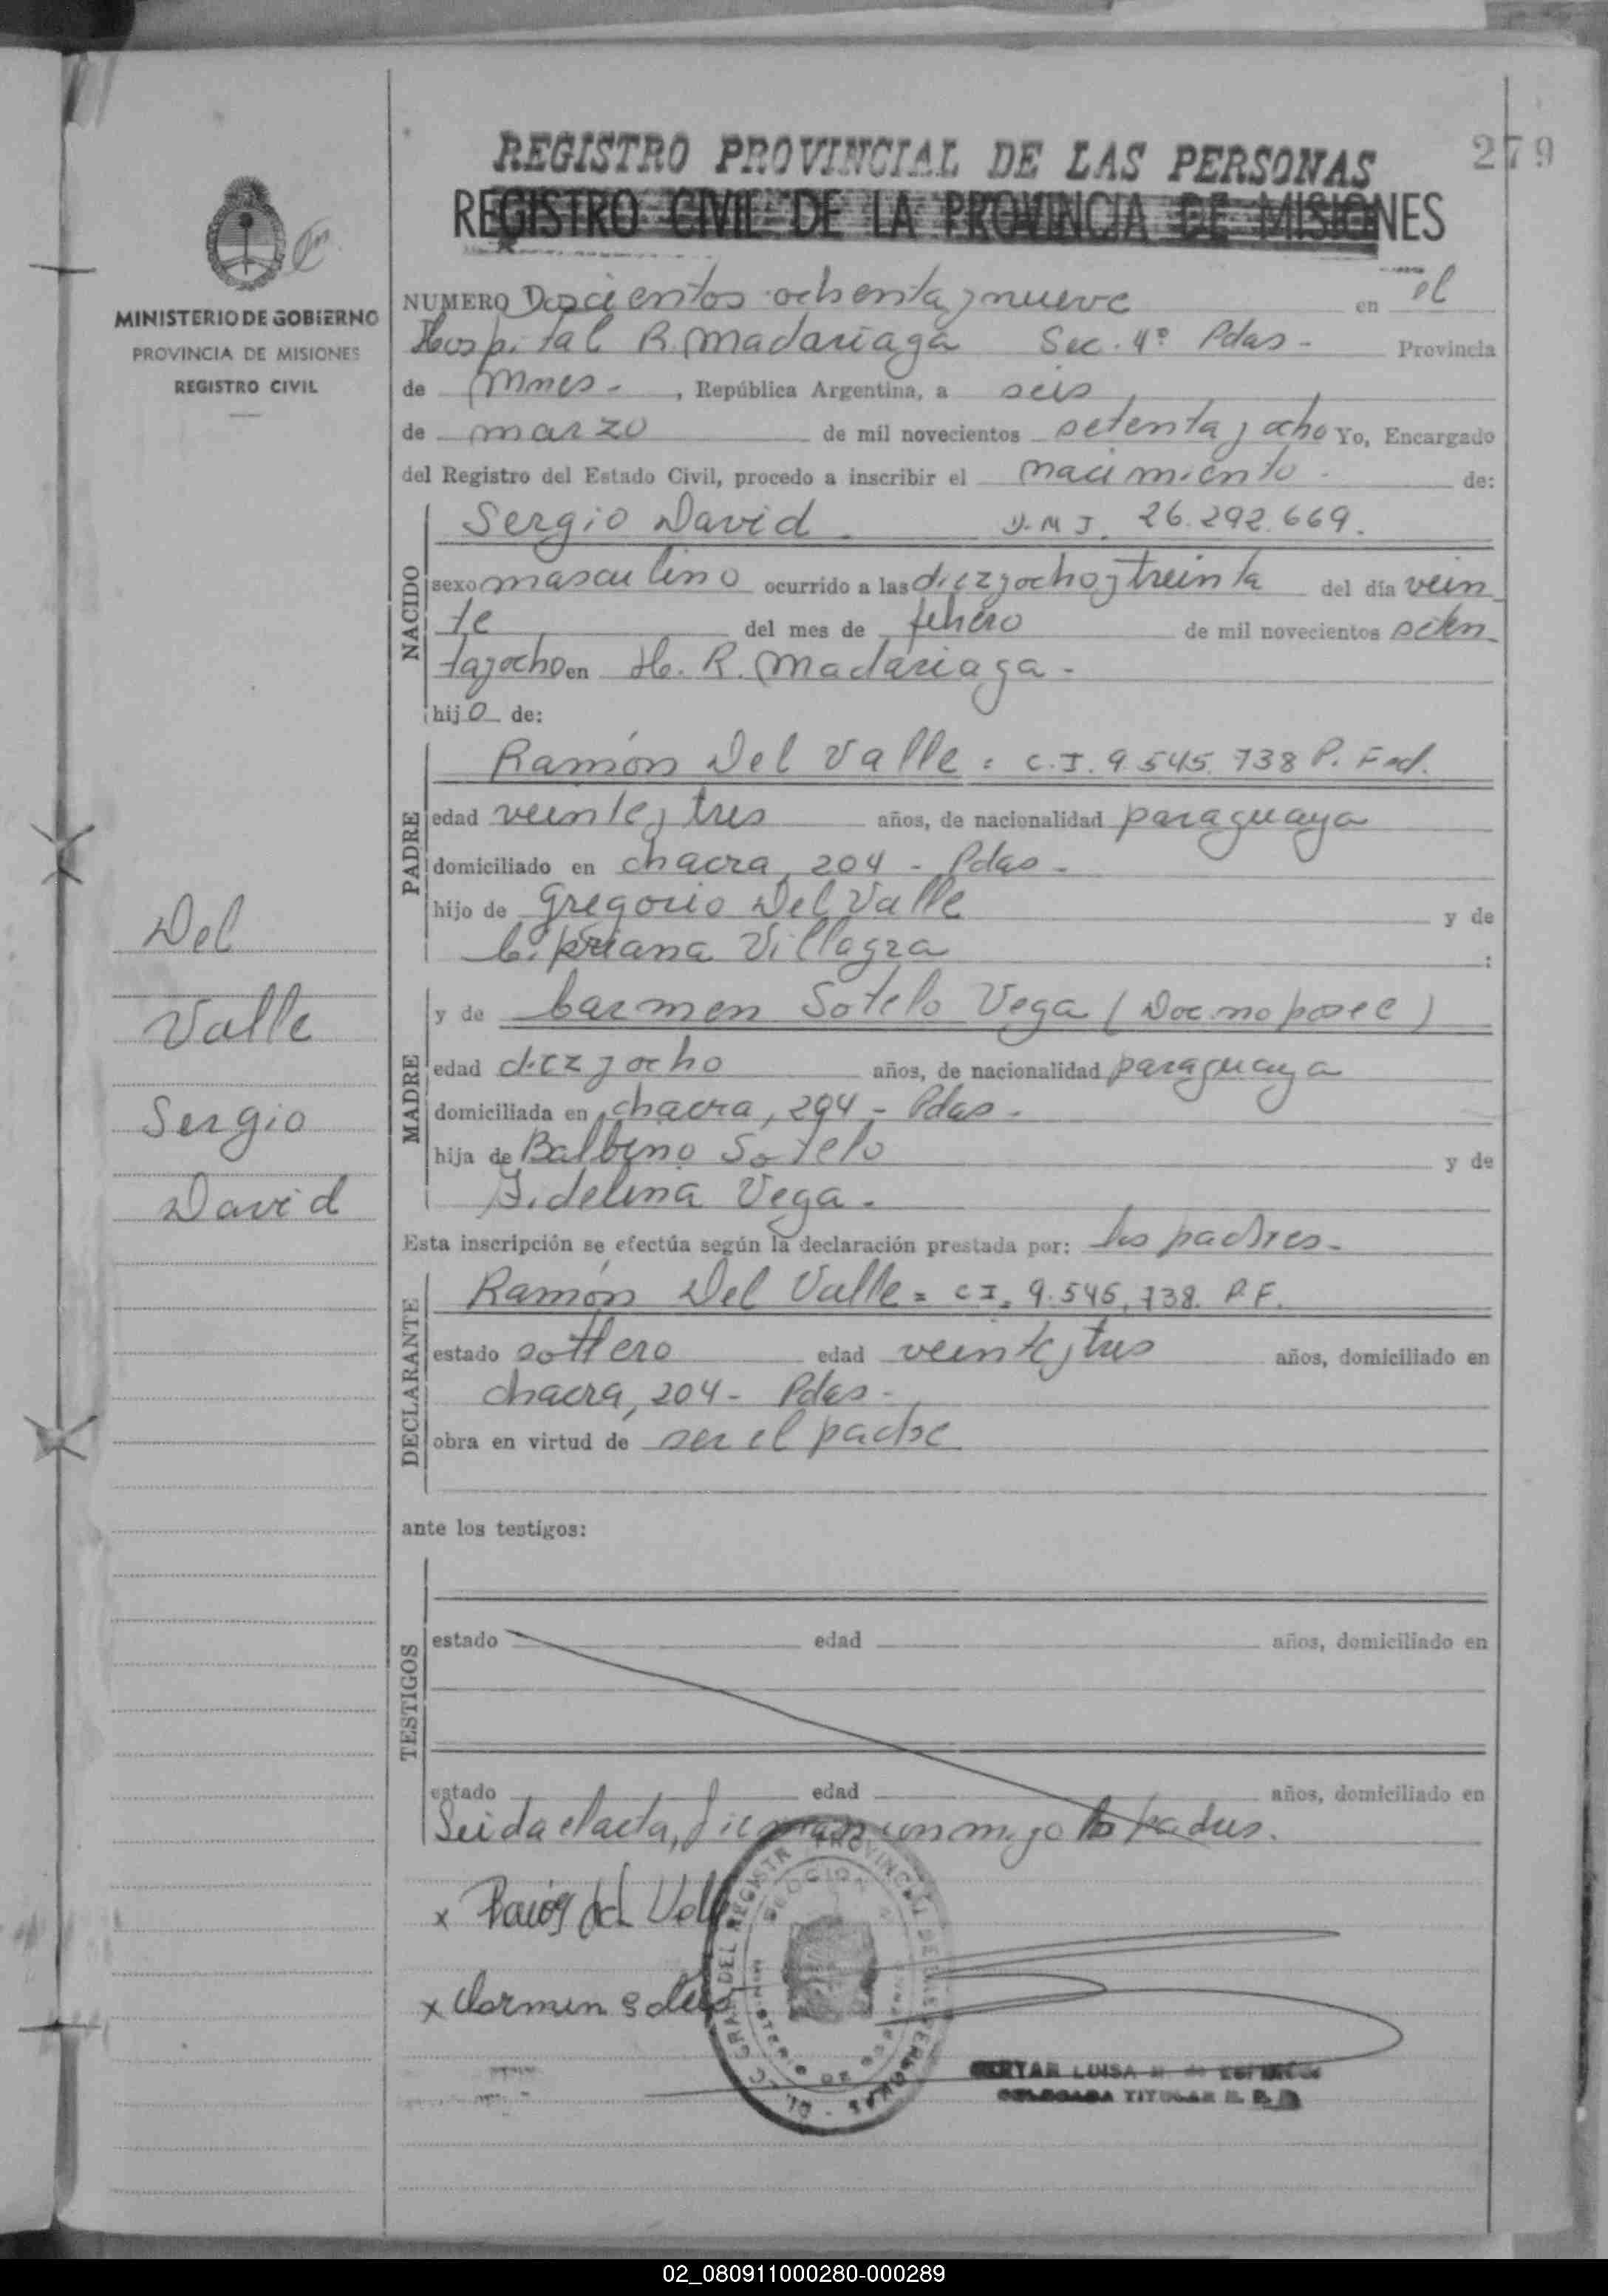 279
REGISTRO PROVINCIAL DE LAS PERSONAS
REGISTRO CIVIL DE LA PROVINCIA DE MISIONES
MINISTERIO DE GOBIERNO
PROVINCIA DE MISIONES
REGISTRO CIVIL
NUMERO Doscientos ochenta y nueve en el
Hospital R. Madariaga Sec. 4º Pdas - Provincia
de Mnes - , República Argentina, a seis
de marzo de mil novecientos setenta y ocho Yo, Encargado
del Registro del Estado Civil, procedo a inscribir el nacimiento - de:
NACIDO
Sergio David D.N.I. 26.292.669.
sexo masculino ocurrido a las diez y ocho y treinta del día vein
te del mes de febrero de mil novecientos seten
ta y ocho en H. R. Madariaga -
hijo de:
PADRE
Ramón Del Valle = C.I. 9.545.738 P. Fed.
edad veinte y tres años, de nacionalidad paraguaya
domiciliado en chacra 204 - Pdas -
hijo de Gregorio Del Valle y de
Cipriana Villagra :
MADRE
y de Carmen Sotelo Vega (Doc. no posee)
edad diez y ocho años, de nacionalidad paraguaya
domiciliada en chacra, 204 - Pdas -
hija de Balbino Sotelo y de
Fidelina Vega -
Esta inscripción se efectúa según la declaración prestada por: los padres -
DECLARANTE
Ramón Del Valle = C.I. 9.545.738. P.F.
estado soltero edad veinte y tres años, domiciliado en
chacra, 204 - Pdas -
obra en virtud de ser el padre
ante los testigos:
TESTIGOS
estado edad años, domiciliado en
estado edad años, domiciliado en
Leida el acta, firman conmigo los padres.
x Ramón del Valle
x Carmen Sotelo
LUISA
DELEGADA TITULAR
Del
Valle
Sergio
David
02_080911000280-000289